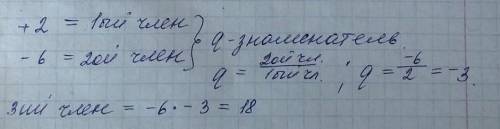 +2 = 1ый член } q-знаменатель.
-6 = 2ой член } q = 2ой чл. / 1ый чл. ; q = -6/2 = -3.
3ий член = -6 · -3 = 18